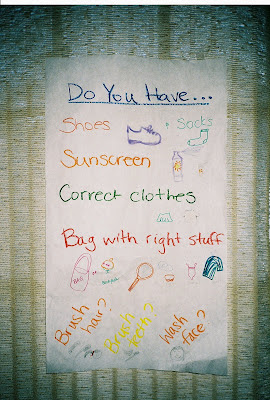 Do You Have...
Shoes socks
Sunscreen
Correct clothes
Bag with right stuff
Brush hair?
Brush teeth?
Wash face?